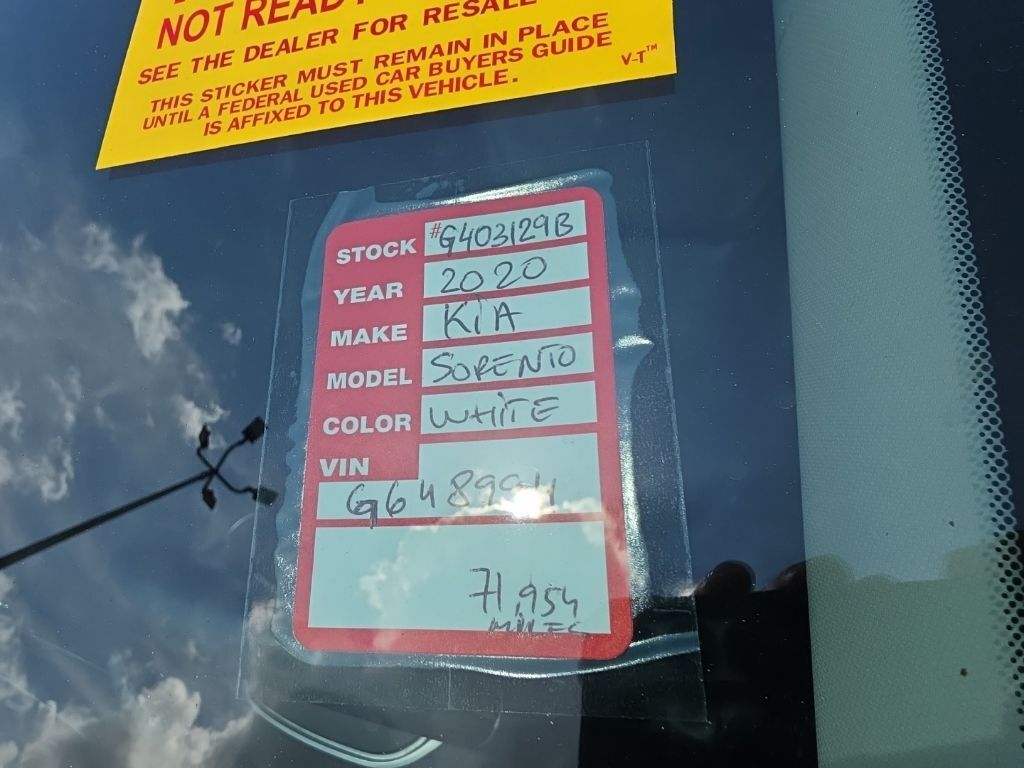 NOT READ
SEE THE DEALER FOR RESALE
THIS STICKER MUST REMAIN IN PLACE
UNTIL A FEDERAL USED CAR BUYERS GUIDE
IS AFFIXED TO THIS VEHICLE.
V-T™
STOCK #G403129B
YEAR 2020
MAKE KiA
MODEL SORENTO
COLOR WHiTE
VIN
71,954
MILES